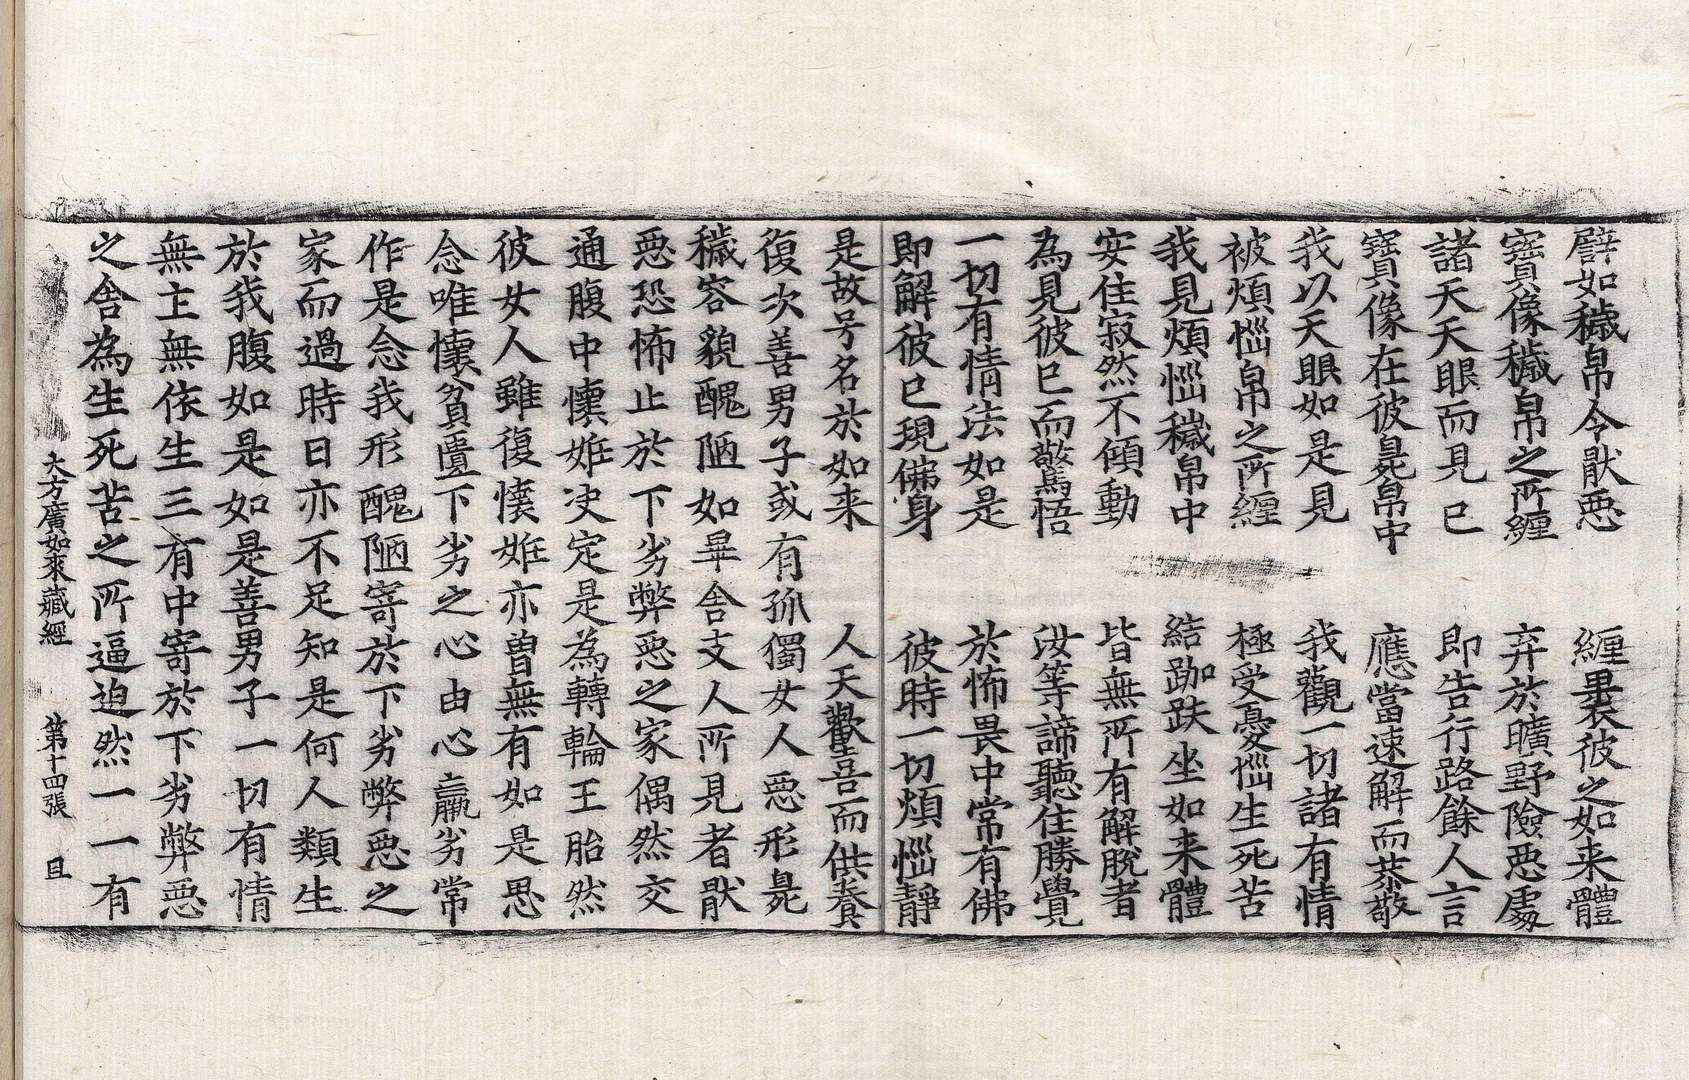 譬如穢帛令猒惡　纏裹彼之如来體
寶像穢帛之所纏　弃於曠野險惡處
諸天天眼而見已　即告行路餘人言
寶像在彼臭帛中　應當速解而恭敬
我以天眼如是見　我觀一切諸有情
被煩惱帛之所纏　極受憂惱生死苦
我見煩惱穢帛中　結跏趺坐如来體
安住寂然不傾動　皆無所有解脫者
為見彼已而驚悟　汝等諦聽住勝覺
一切有情法如是　於怖畏中常有佛
即解彼已現佛身　彼時一切煩惱靜
是故号名於如来　人天歡喜而供養
復次善男子或有孤獨女人惡形臭
穢容貌醜陋如畢舍支人所見者猒
惡恐怖止於下劣弊惡之家偶然交
通腹中懷妊決定是為轉輪王胎然
彼女人雖復懷妊亦曽無有如是思
念唯懷貧匱下劣之心由心羸劣常
作是念我形醜陋寄於下劣弊惡之
家而過時日亦不足知是何人類生
於我腹如是如是善男子一切有情
無主無依生三有中寄於下劣弊惡
之舍為生死苦之所逼迫然一一有
大方廣如來藏經　第十四張　且